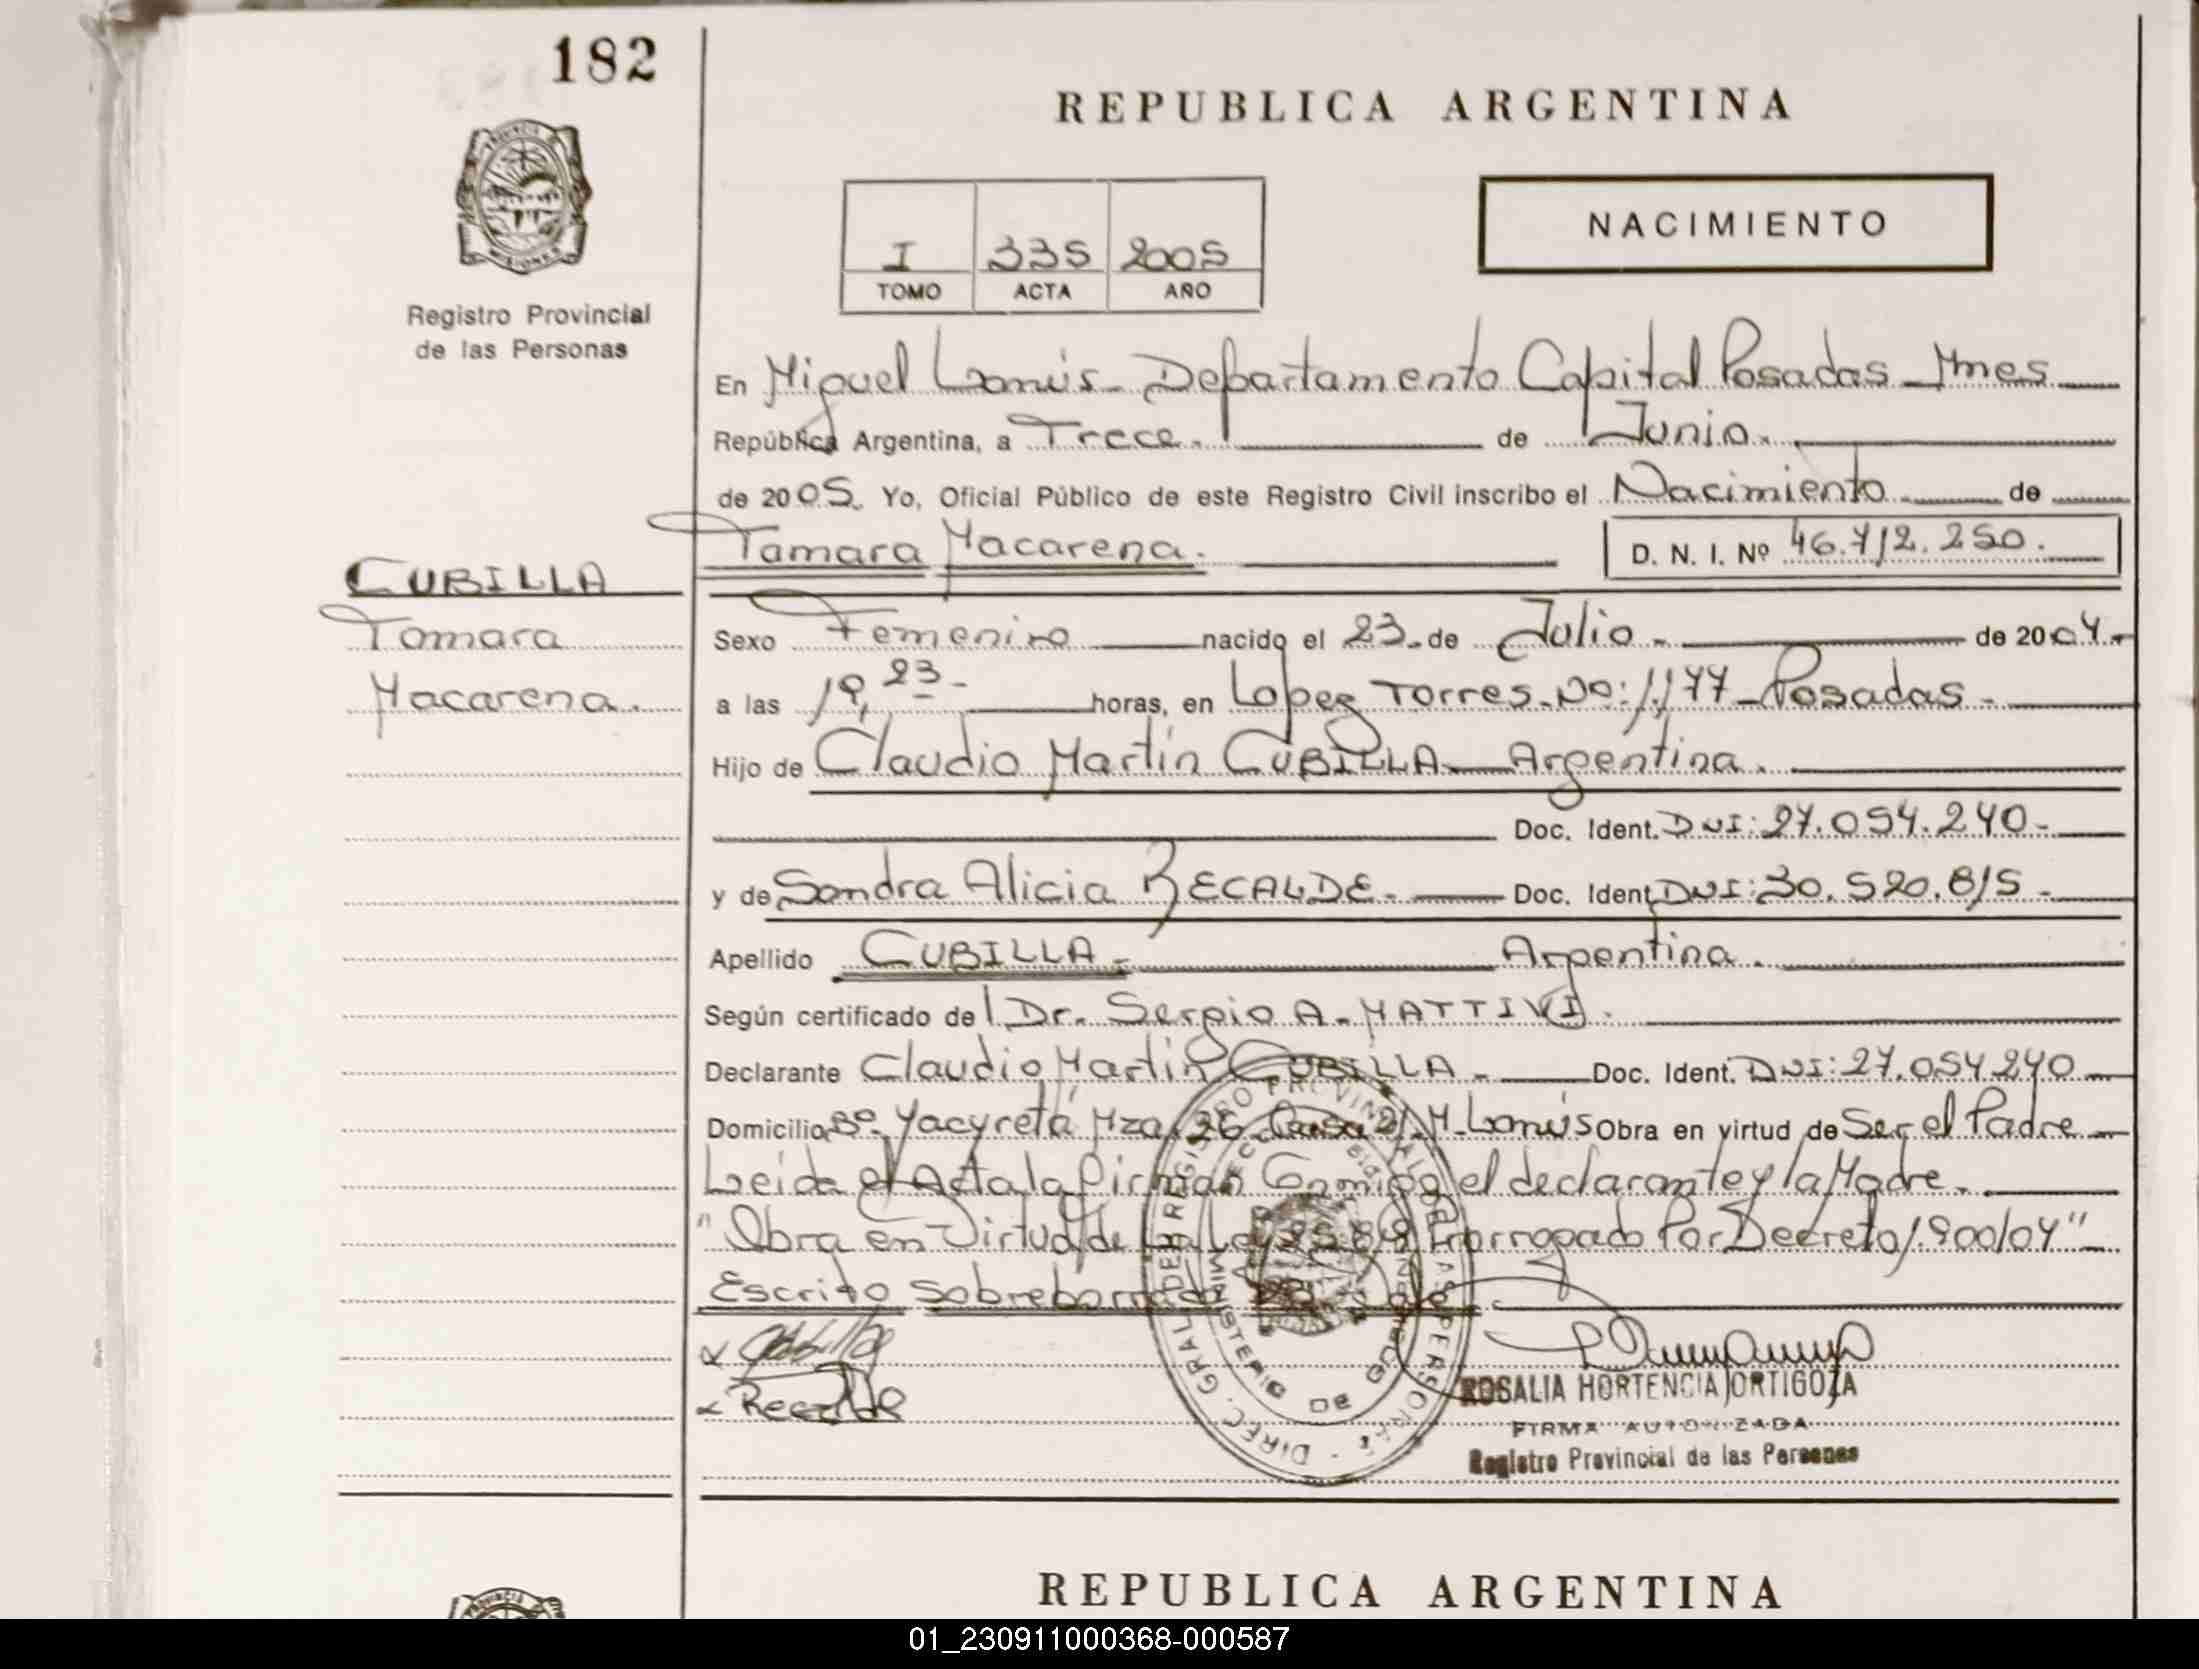 182
REPUBLICA ARGENTINA
PROVINCIA DE
MISIONES
Registro Provincial
de las Personas
NACIMIENTO
I 335 2005
TOMO ACTA AÑO
En Miguel Lanús - Departamento Capital Posadas - Mnes
República Argentina, a Trece. de Junio.
de 2005. Yo, Oficial Público de este Registro Civil inscribo el Nacimiento de
Tamara Macarena. D. N. I. Nº 46.712.250.
CUBILLA
Tamara
Macarena.
Sexo Femenino nacido el 23. de Julio - de 2004.
a las 19,23 - horas, en Lopez Torres - No: 1177 - Posadas -
Hijo de Claudio Martín CUBILLA - Argentina.
Doc. Ident. DNI: 27.054.240 -
y de Sandra Alicia RECALDE - Doc. Ident. DNI: 30.520.815 -
Apellido CUBILLA - Argentina.
Según certificado de Dr. Sergio A. MATTIVI.
Declarante Claudio Martín CUBILLA - Doc. Ident. DNI: 27.054.240
Domicilio Bº. Yacyretá Mza. 26 Casa 21 M. Lanús Obra en virtud de Ser el Padre -
Leida el Acta la firman Conmigo el declarante y la Madre.
"Obra en Virtud de La Ley Prorrogado Por Decreto 1.900/04" -
Escrito sobreborrado
Recalde
DIREC. GRAL DE REGISTRO PROVINCIAL DE LAS PERSONAS
MINISTERIO DE GOBIERNO
ROSALIA HORTENCIA ORTIGOZA
FIRMA AUTORIZADA
Registro Provincial de las Personas
REPUBLICA ARGENTINA
01_230911000368-000587